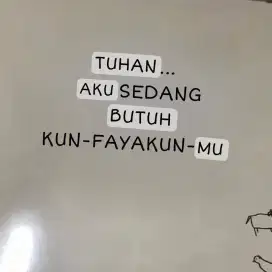 TUHAN...
AKU SEDANG
BUTUH
KUN-FAYAKUN-MU